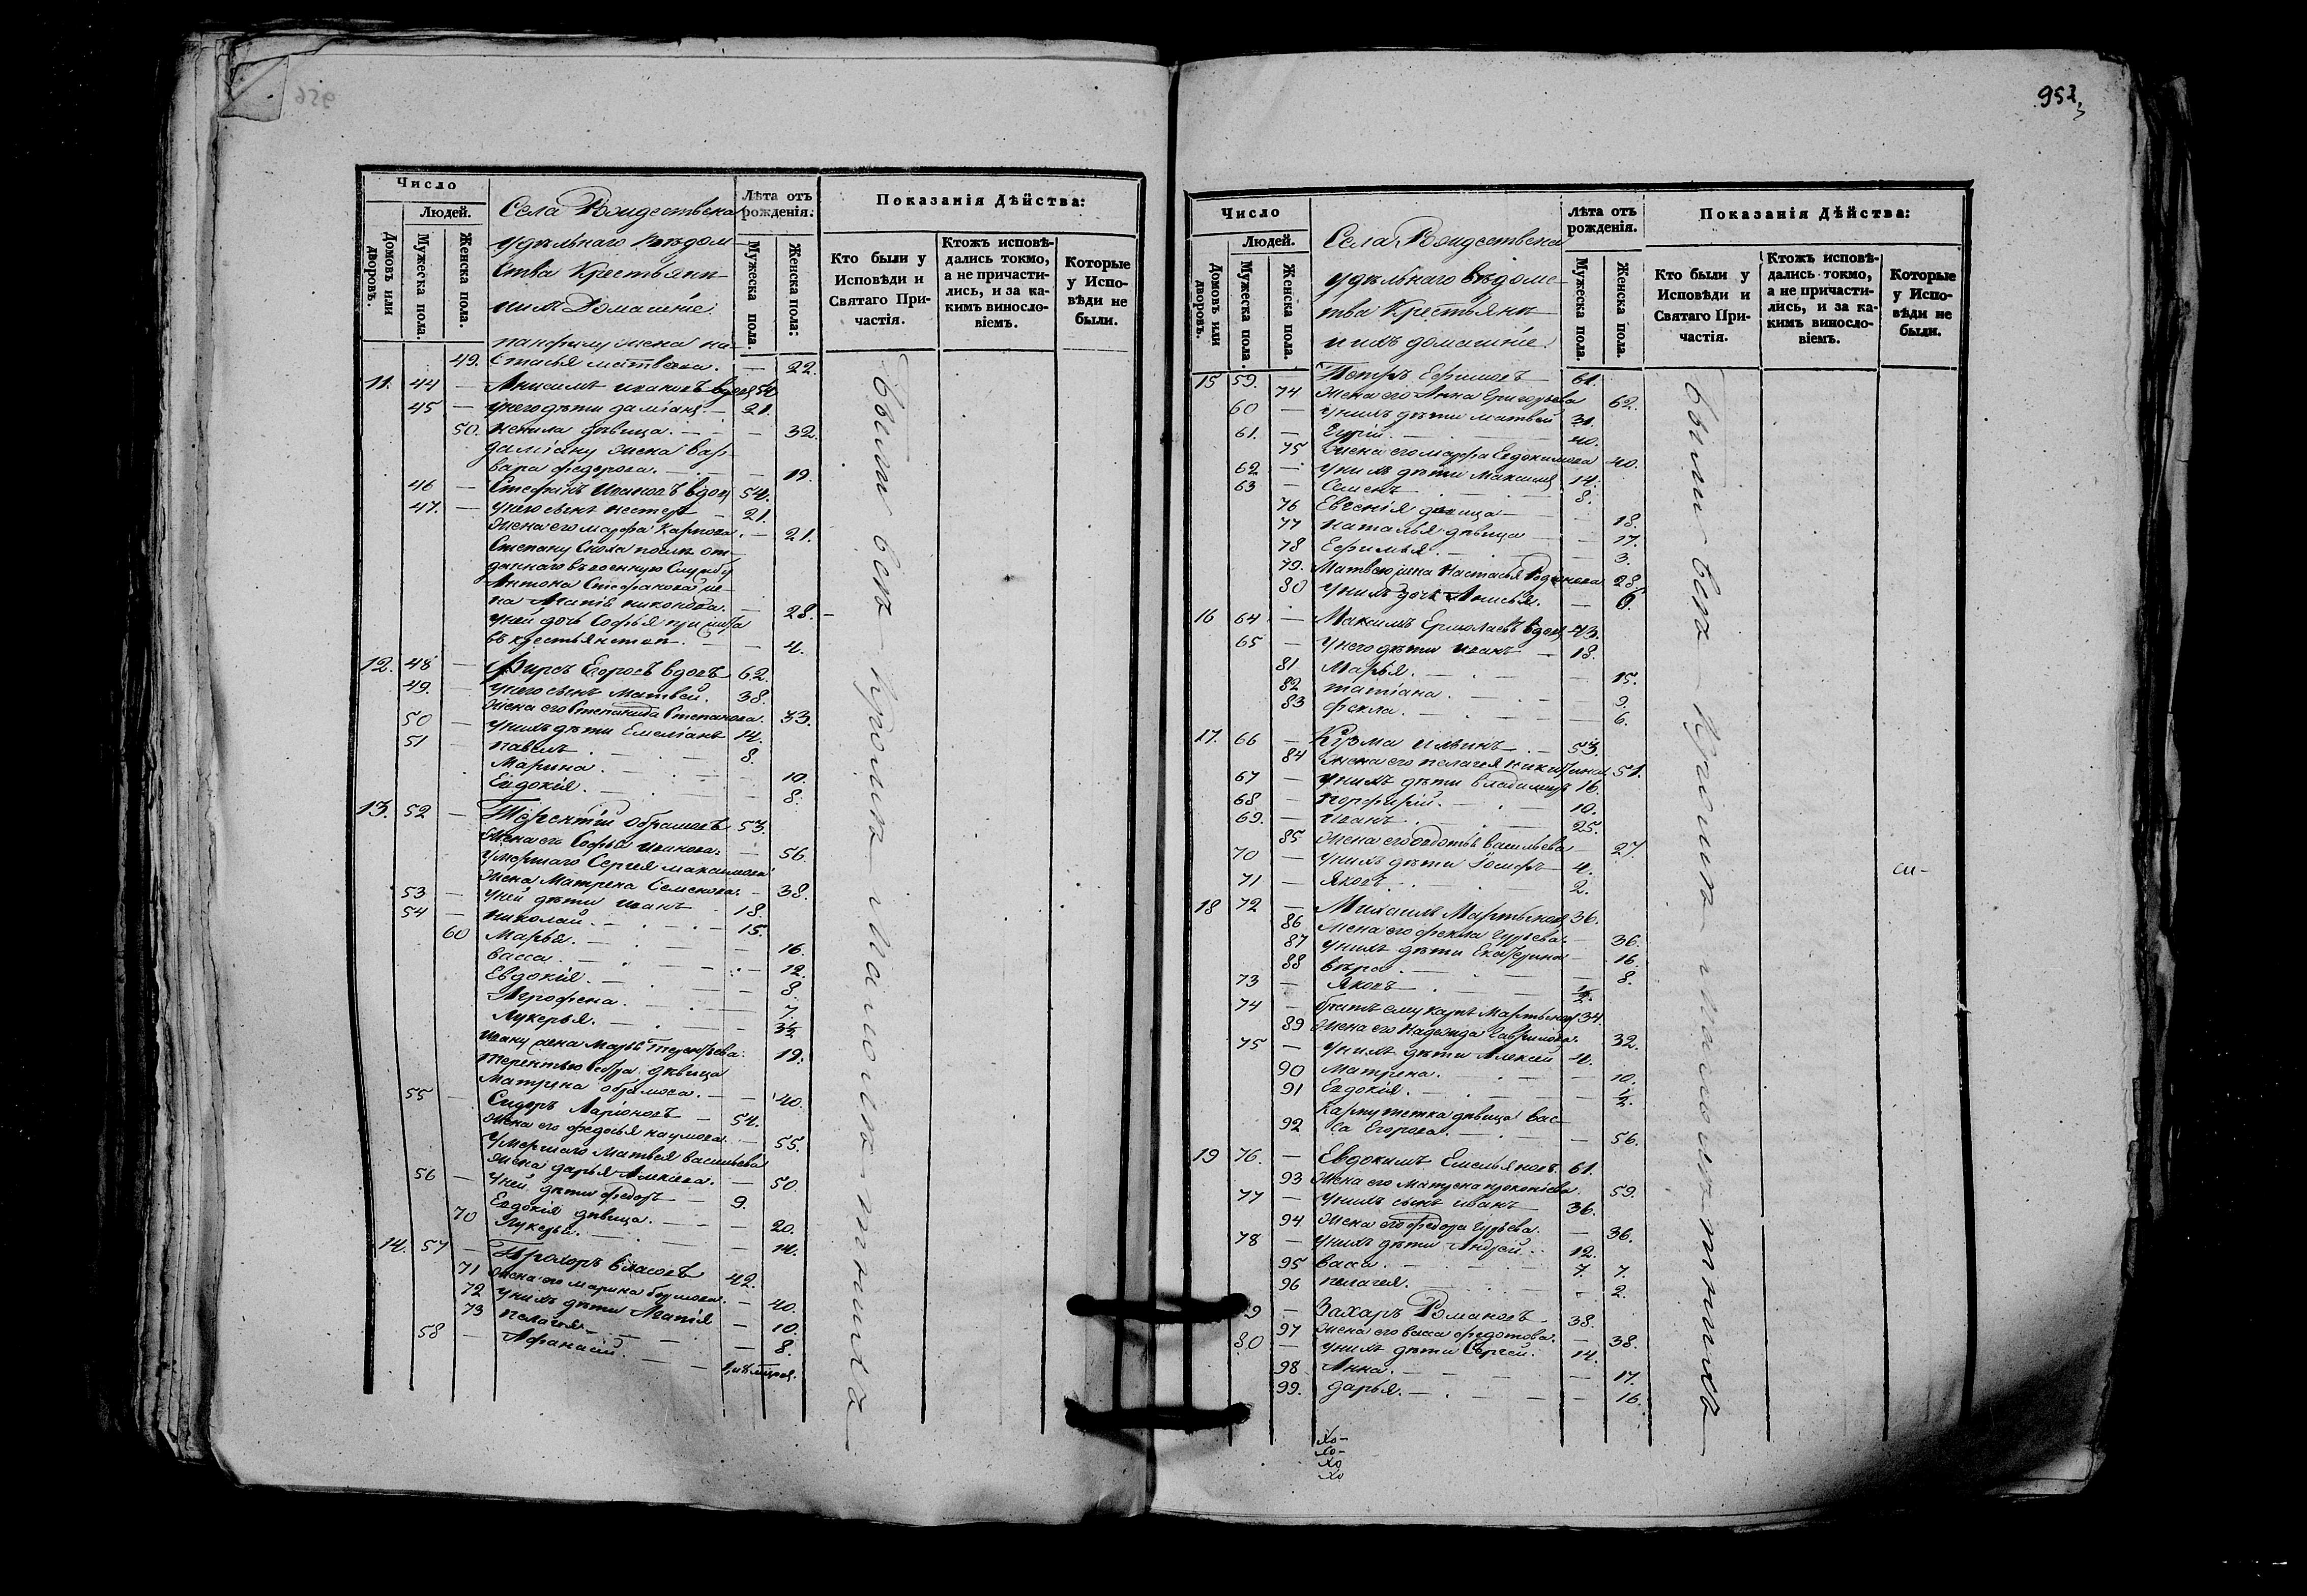 953
Число
Людей.
Домовъ или дворовъ.
Мужеска пола.
Женска пола.
Села Рождествена
удѣльнаго вѣдом-
ства Крестьяне
и ихъ домашніе.
Лѣта отъ рожденія.
Мужеска пола.
Женска пола:
Показанія Дѣйства:
Кто были у Исповѣди и Святаго Причастія.
Ктожъ исповѣдались токмо, а не причастились, и за какимъ винословіемъ.
Которые у Исповѣди не были.
панфилу жена на-
49. стасья матвеева. — 22.
11. 44 — Анисимъ ивановъ вдовъ 54
45 — у него дѣти даміанъ — 21.
50. ненила дѣвица. — 32.
даміану жена вар-
вара федорова. — 19.
46 — Стефанъ Ивановъ вдовъ 54.
47. — у него сынъ нестеръ — 21.
жена его марфа Карпова. — 21.
Степану сноха послѣ от-
даннаго въ военную службу
Антона Стефанова же-
на Агапія никонова. — 28.
у ней дочь Софья прижита
въ крестьянствѣ — 4.
12. 48 — Фирсъ Егоровъ вдовъ 62.
49. — у него сынъ матвей. 38.
жена его Степанида Степанова. 33.
50 — у нихъ дѣти Емеліанъ 14.
51 — павелъ. 8.
Марина. — 10.
Евдокія. — 8.
13. 52 — Терентій Обрамовъ 53.
жена его Софья иванова. — 56.
умершаго Сергея максимова
жена Матрена Семенова. — 38.
53 — у ней дѣти иванъ 18.
54 — николай. — 15.
60 Марья. — 16.
васса. — 12.
Евдокія. — 8.
Агрофена. — 7.
Лукерья. — 3½
ивану жена Марья Терентьева. 19.
терентью сестра дѣвица
Матрена обрамова. — 40.
55 — Сидоръ Ларіоновъ — 54.
жена его федосья наумова. — 55.
умершаго Матвея васильева
жена дарья Алексѣева. — 50.
56 — у ней дѣти федоръ — 9.
Евдокія дѣвица. — 20.
70 Лукерья. — 14.
14. 57 — Прохоръ власовъ 42.
71 жена его марина — 40.
72 у нихъ дѣти Агапія — 10.
73 пелагея — 8.
58 — Афанасій.
были всѣ кромѣ малолѣтнихъ
Число
Людей.
Домовъ или дворовъ.
Мужеска пола.
Женска пола.
Села Рождествена
удѣльнаго вѣдомс-
тва Крестьяне
и ихъ домашніе.
Лѣта отъ рожденія.
Мужеска пола.
Женска пола.
Показанія Дѣйства:
Кто были у Исповѣди и Святаго Причастія.
Ктожъ исповѣдались токмо, а не причастились, и за какимъ винословіемъ.
Которые у Исповѣди не были.
15 59. — Петръ Ефимовъ 61.
74 жена его Анна Григорьева 62.
60 — у нихъ дѣти матвей 31.
61. — Гурій. — 40.
75 жена его марфа Евдокимова 40.
62 — у нихъ дѣти Максимъ 14.
63 — Семенъ 8.
76 Евгенія дѣвица — 18.
77 наталья дѣвица — 17.
78 Ефимья. — 3.
79. Матвею жена Настасья Родіонова 28.
80 у нихъ дочь Анисья. —
16 64 — Максимъ Ермолаевъ вдовъ 43.
65 — у него дѣти иванъ — 18.
81 Марья. — 15.
82 татіана. — 9.
83 фекла. — 6.
17. 66 — Кузма ильинъ — 53.
84 жена его пелагея никитина 51.
67 — у нихъ дѣти владимиръ 16.
68 — порфирій. — 10.
69. — иванъ. 25.
85 жена его Овдотья васильева 27.
70 — у нихъ дѣти Іосифъ 4.
71 — Яковъ. 2.
18 72 — Михаилъ Мартыновъ 36.
86 жена его фекла Гурьева. — 36.
87 у нихъ дѣти Екатерина — 16.
88 вѣра. — 8.
73 — Яковъ — ½.
74 — братъ ему карпъ Мартыновъ 34.
89 жена его Надежда Гаврилова. 32.
75 — у нихъ дѣти Алексей 4.
90 Матрена. — 10.
91 Евдокія. — ½.
Карпу тетка дѣвица вас-
92 са Егорова. — 56.
19 76. — Евдокимъ Емельяновъ. 61.
93 жена его Матрена прокопіева. 59.
77 — у нихъ сынъ иванъ 36.
94 жена его федора Гурьева. — 36.
78 — у нихъ дѣти Андрей. 12.
95 васса. — 7. 7.
96 пелагея. — 2.
9 — Захаръ Романовъ 38.
97 жена его васса федотова. — 38.
80 — у нихъ дѣти Сергей. 14.
98 Анна. — 17.
99. дарья. — 16.
были всѣ кромѣ малолѣтнихъ